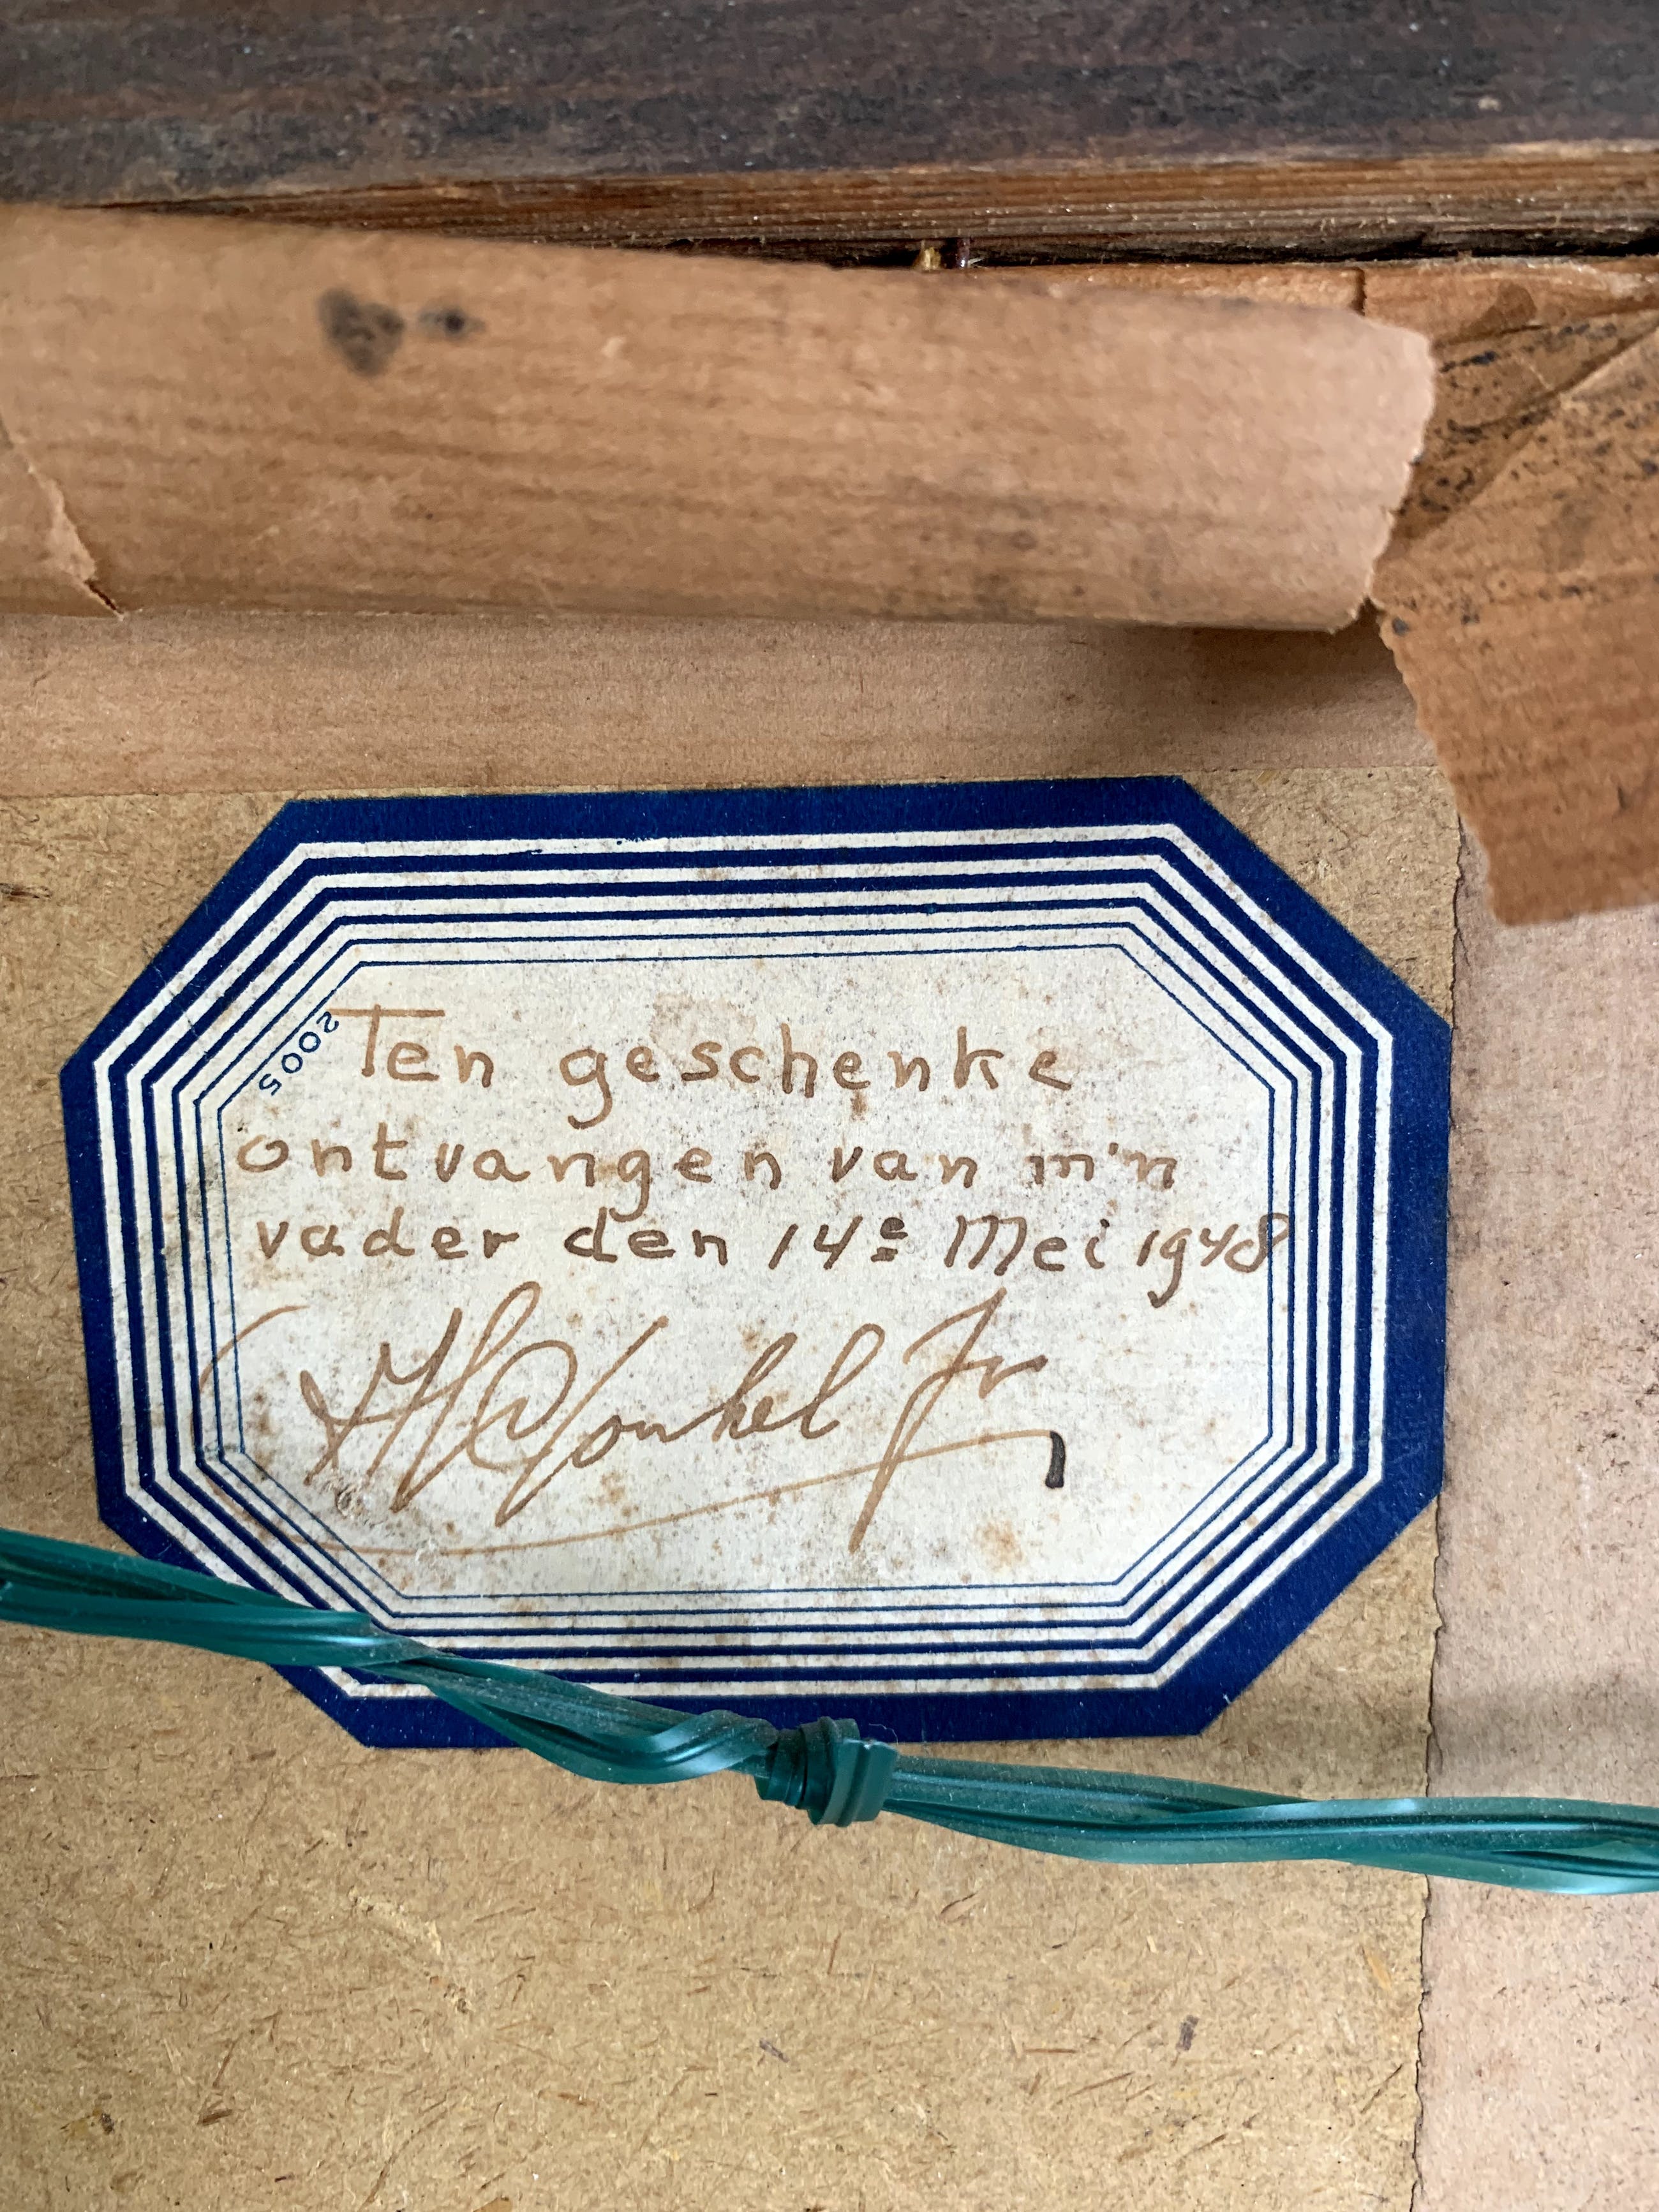 2005
Ten geschenke
ontvangen van m'n
vader den 14e Mei 1948
Jr